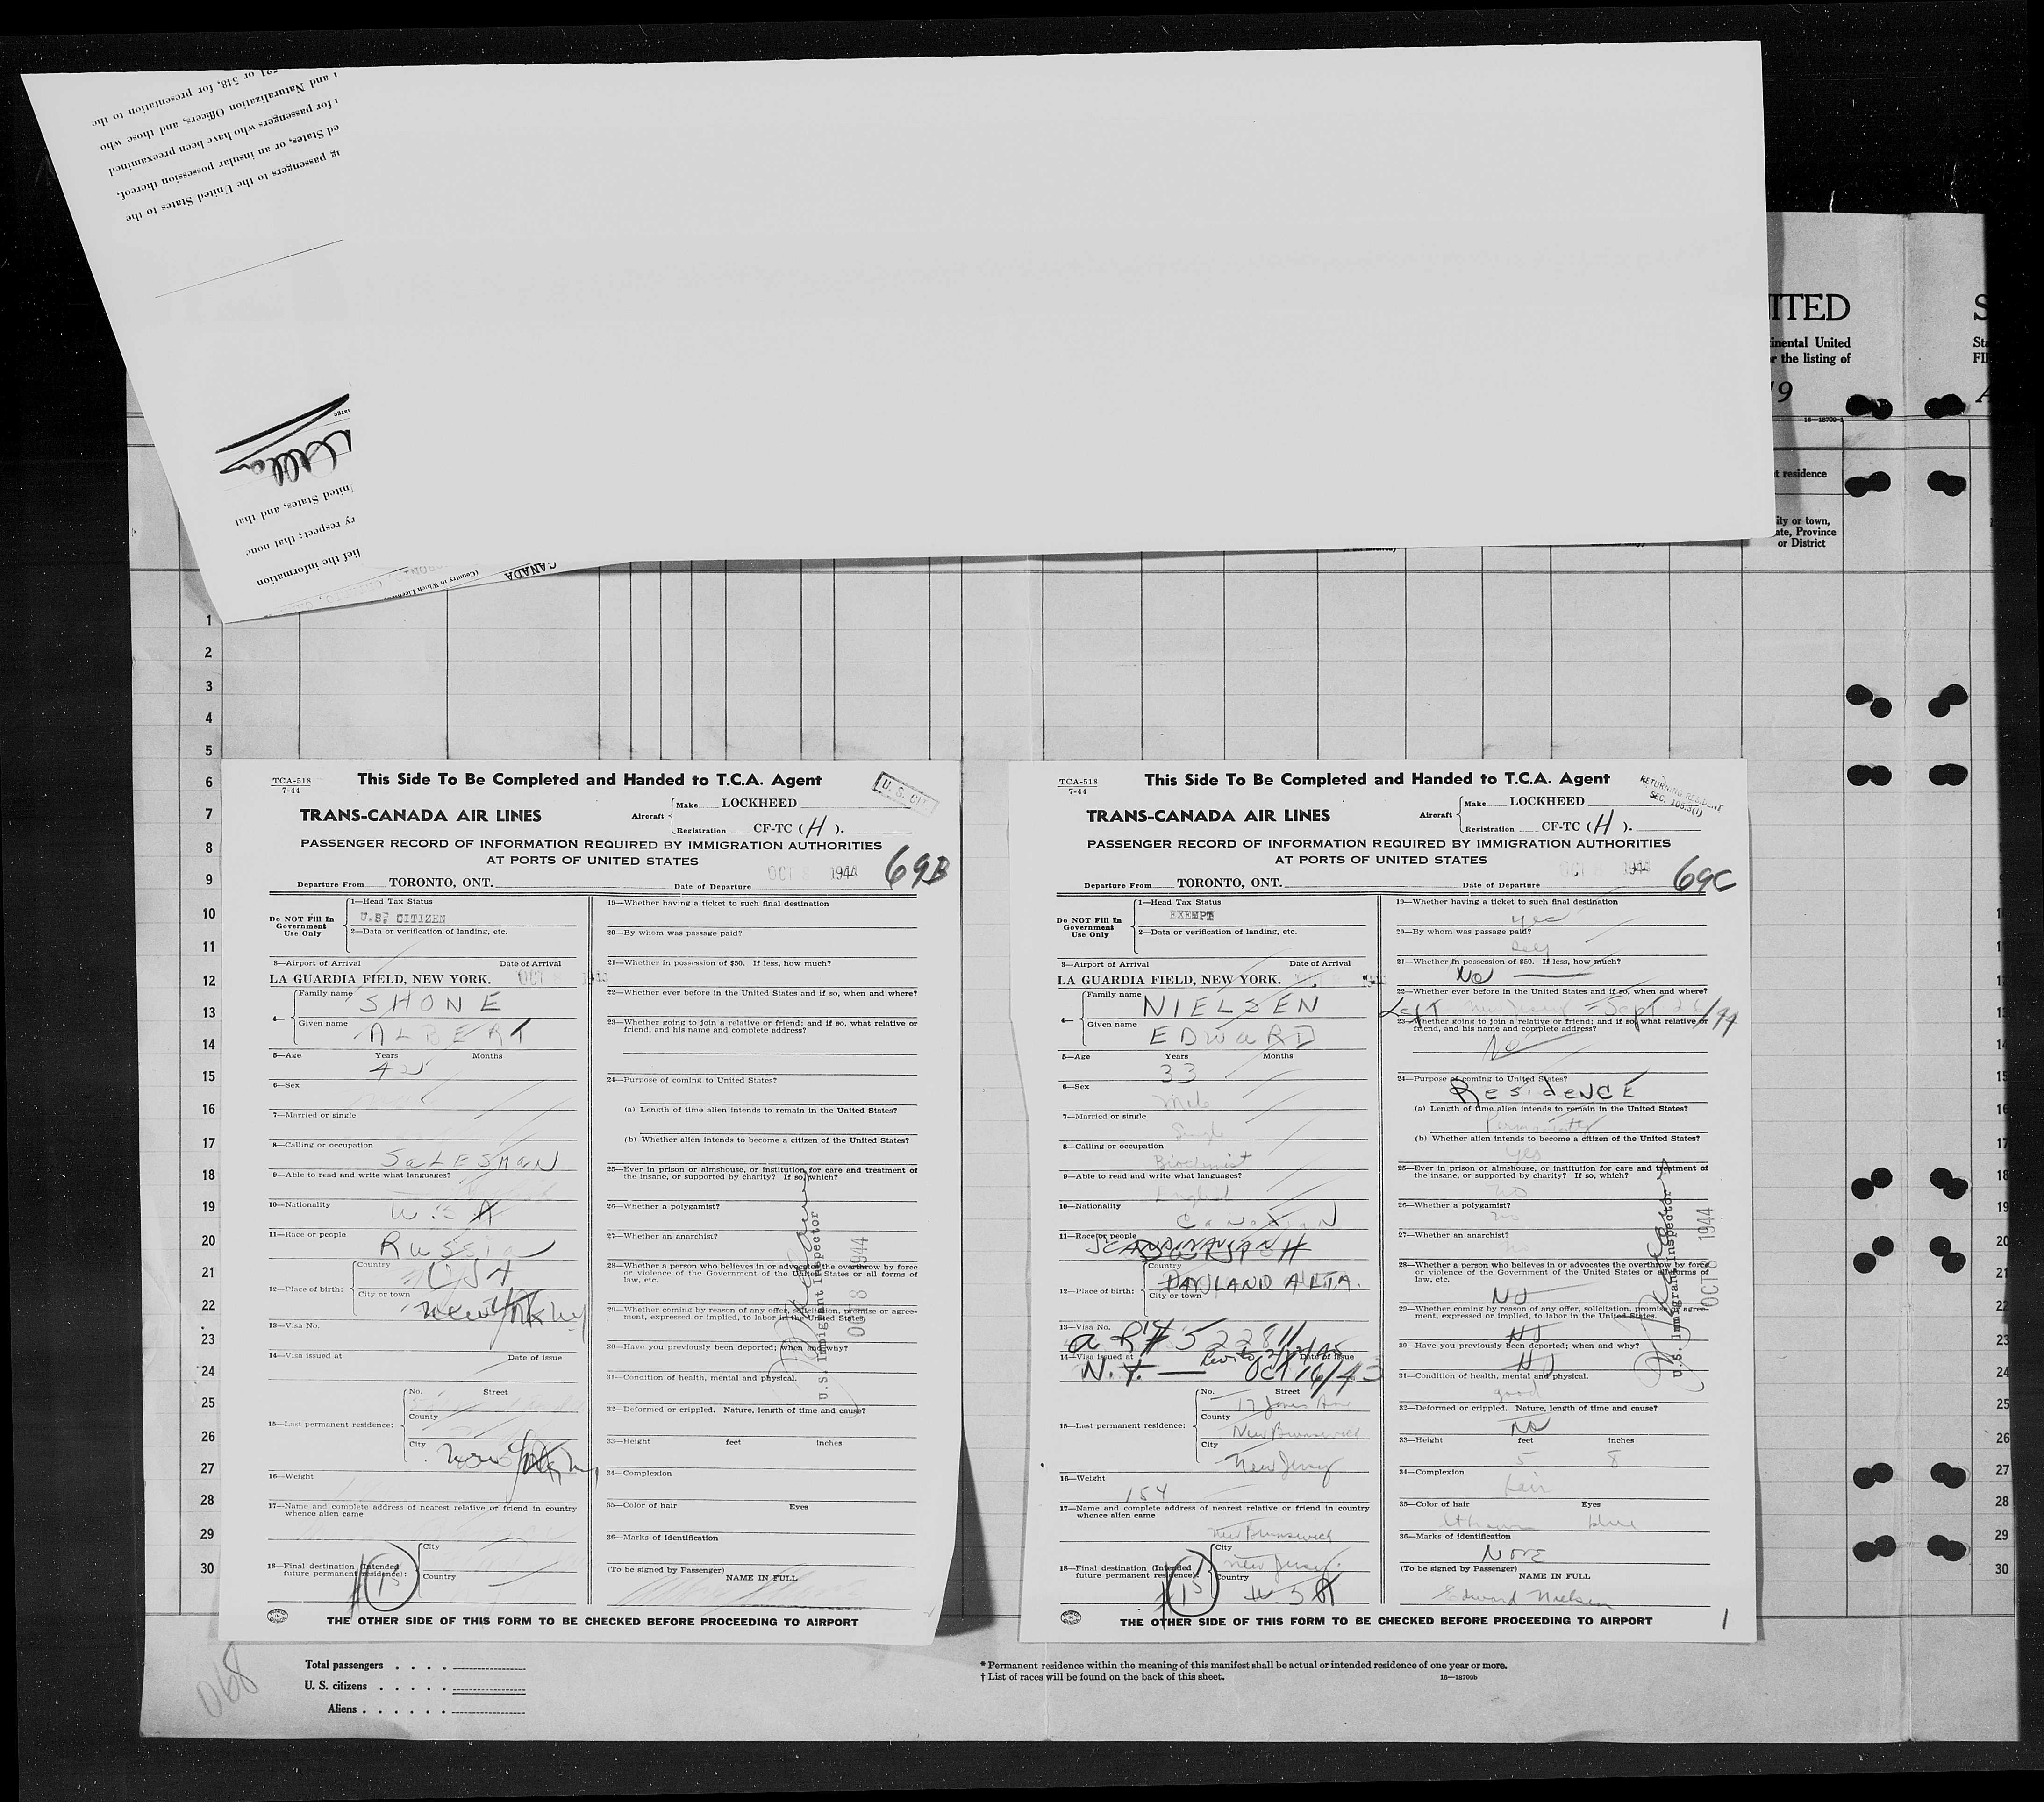 521 or 548, for presentation to the
and Naturalization Officers, and those who
for passengers who have been preexamined
ed States, or an insular possession thereof.
passengers to the United States to the
United States, and that
ry respect; that none
lief the information
CANADA
(Country in Which
ITED
inental United
r the listing of
19
16—18709-1
t residence
ity or town,
ate, Province
or District
S
Sta
FI
1
2
3
4
5
6
7
8
9
10
11
12
13
14
15
16
17
18
19
20
21
22
23
24
25
26
27
28
29
30
TCA-518
7-44
This Side To Be Completed and Handed to T.C.A. Agent
U. S. CIT
TRANS-CANADA AIR LINES
Aircraft
Make LOCKHEED
Registration CF-TC ( H ).
PASSENGER RECORD OF INFORMATION REQUIRED BY IMMIGRATION AUTHORITIES
AT PORTS OF UNITED STATES
OCT 8 1944
69B
Departure From TORONTO, ONT. Date of Departure
Do NOT Fill In
Government
Use Only
1—Head Tax Status
U.S. CITIZEN
2—Data or verification of landing, etc.
3—Airport of Arrival Date of Arrival
LA GUARDIA FIELD, NEW YORK. OCT
4—
Family name SHONE
Given name ALBERT
5—Age Years Months
45
6—Sex
7—Married or single
8—Calling or occupation
SALESMAN
9—Able to read and write what languages?
10—Nationality
U.S.A
11—Race or people
Russia
12—Place of birth:
Country
USA
City or town
New York NY
13—Visa No.
14—Visa issued at Date of issue
15—Last permanent residence:
No. Street
County
City
New York
16—Weight
17—Name and complete address of nearest relative or friend in country
whence alien came
18—Final destination (Intended
future permanent residence):
City
Country
15
19—Whether having a ticket to such final destination
20—By whom was passage paid?
21—Whether in possession of $50. If less, how much?
22—Whether ever before in the United States and if so, when and where?
23—Whether going to join a relative or friend; and if so, what relative or
friend, and his name and complete address?
24—Purpose of coming to United States?
(a) Length of time alien intends to remain in the United States?
(b) Whether alien intends to become a citizen of the United States?
25—Ever in prison or almshouse, or institution for care and treatment of
the insane, or supported by charity? If so, which?
26—Whether a polygamist?
27—Whether an anarchist?
28—Whether a person who believes in or advocates the overthrow by force
or violence of the Government of the United States or all forms of
law, etc.
29—Whether coming by reason of any offer, solicitation, promise or agree-
ment, expressed or implied, to labor in the United States.
30—Have you previously been deported; when and why?
31—Condition of health, mental and physical.
32—Deformed or crippled. Nature, length of time and cause?
33—Height feet inches
34—Complexion
35—Color of hair Eyes
36—Marks of identification
(To be signed by Passenger)
NAME IN FULL
U.S. Immigrant Inspector
OCT 8 1944
THE OTHER SIDE OF THIS FORM TO BE CHECKED BEFORE PROCEEDING TO AIRPORT
TCA-518
7-44
This Side To Be Completed and Handed to T.C.A. Agent
RETURNING RESIDENT
SEC. 108.3(1)
TRANS-CANADA AIR LINES
Aircraft
Make LOCKHEED
Registration CF-TC ( H ).
PASSENGER RECORD OF INFORMATION REQUIRED BY IMMIGRATION AUTHORITIES
AT PORTS OF UNITED STATES
OCT 1944
69C
Departure From TORONTO, ONT. Date of Departure
Do NOT Fill In
Government
Use Only
1—Head Tax Status
EXEMPT
2—Data or verification of landing, etc.
3—Airport of Arrival Date of Arrival
LA GUARDIA FIELD, NEW YORK.
4—
Family name NIELSEN
Given name EDWARD
5—Age Years Months
33
6—Sex
Male
7—Married or single
Single
8—Calling or occupation
Biochemist
9—Able to read and write what languages?
English
10—Nationality
Canadian
11—Race or people
SCANDINAVIAN
12—Place of birth:
Country
HAYLAND ALTA.
City or town
13—Visa No.
14—Visa issued at Date of issue
N.Y. — Oct 16/43
15—Last permanent residence:
No. Street
17 Jones Ave
County
New Brunswick
City
New Jersey
16—Weight
154
17—Name and complete address of nearest relative or friend in country
whence alien came
New Brunswick
18—Final destination (Intended
future permanent residence):
City
New Jersey
Country
U.S.A
15
19—Whether having a ticket to such final destination
yes
20—By whom was passage paid?
Self
21—Whether in possession of $50. If less, how much?
No
22—Whether ever before in the United States and if so, when and where?
Left New Jersey = Sept 26/44
23—Whether going to join a relative or friend; and if so, what relative or
friend, and his name and complete address?
No
24—Purpose of coming to United States?
Residence
(a) Length of time alien intends to remain in the United States?
Permanently
(b) Whether alien intends to become a citizen of the United States?
yes
25—Ever in prison or almshouse, or institution for care and treatment of
the insane, or supported by charity? If so, which?
no
26—Whether a polygamist?
no
27—Whether an anarchist?
no
28—Whether a person who believes in or advocates the overthrow by force
or violence of the Government of the United States or all forms of
law, etc.
NO
29—Whether coming by reason of any offer, solicitation, promise or agree-
ment, expressed or implied, to labor in the United States.
NO
30—Have you previously been deported; when and why?
NO
31—Condition of health, mental and physical.
good
32—Deformed or crippled. Nature, length of time and cause?
No
33—Height feet inches
5 8
34—Complexion
fair
35—Color of hair Eyes
blue
36—Marks of identification
NONE
(To be signed by Passenger)
NAME IN FULL
Edward Nielsen
U.S. Immigrant Inspector
OCT 8 1944
THE OTHER SIDE OF THIS FORM TO BE CHECKED BEFORE PROCEEDING TO AIRPORT
1
068
Total passengers . . . .
U. S. citizens . . . . .
Aliens . . . . . .
* Permanent residence within the meaning of this manifest shall be actual or intended residence of one year or more.
† List of races will be found on the back of this sheet. 16—18709b